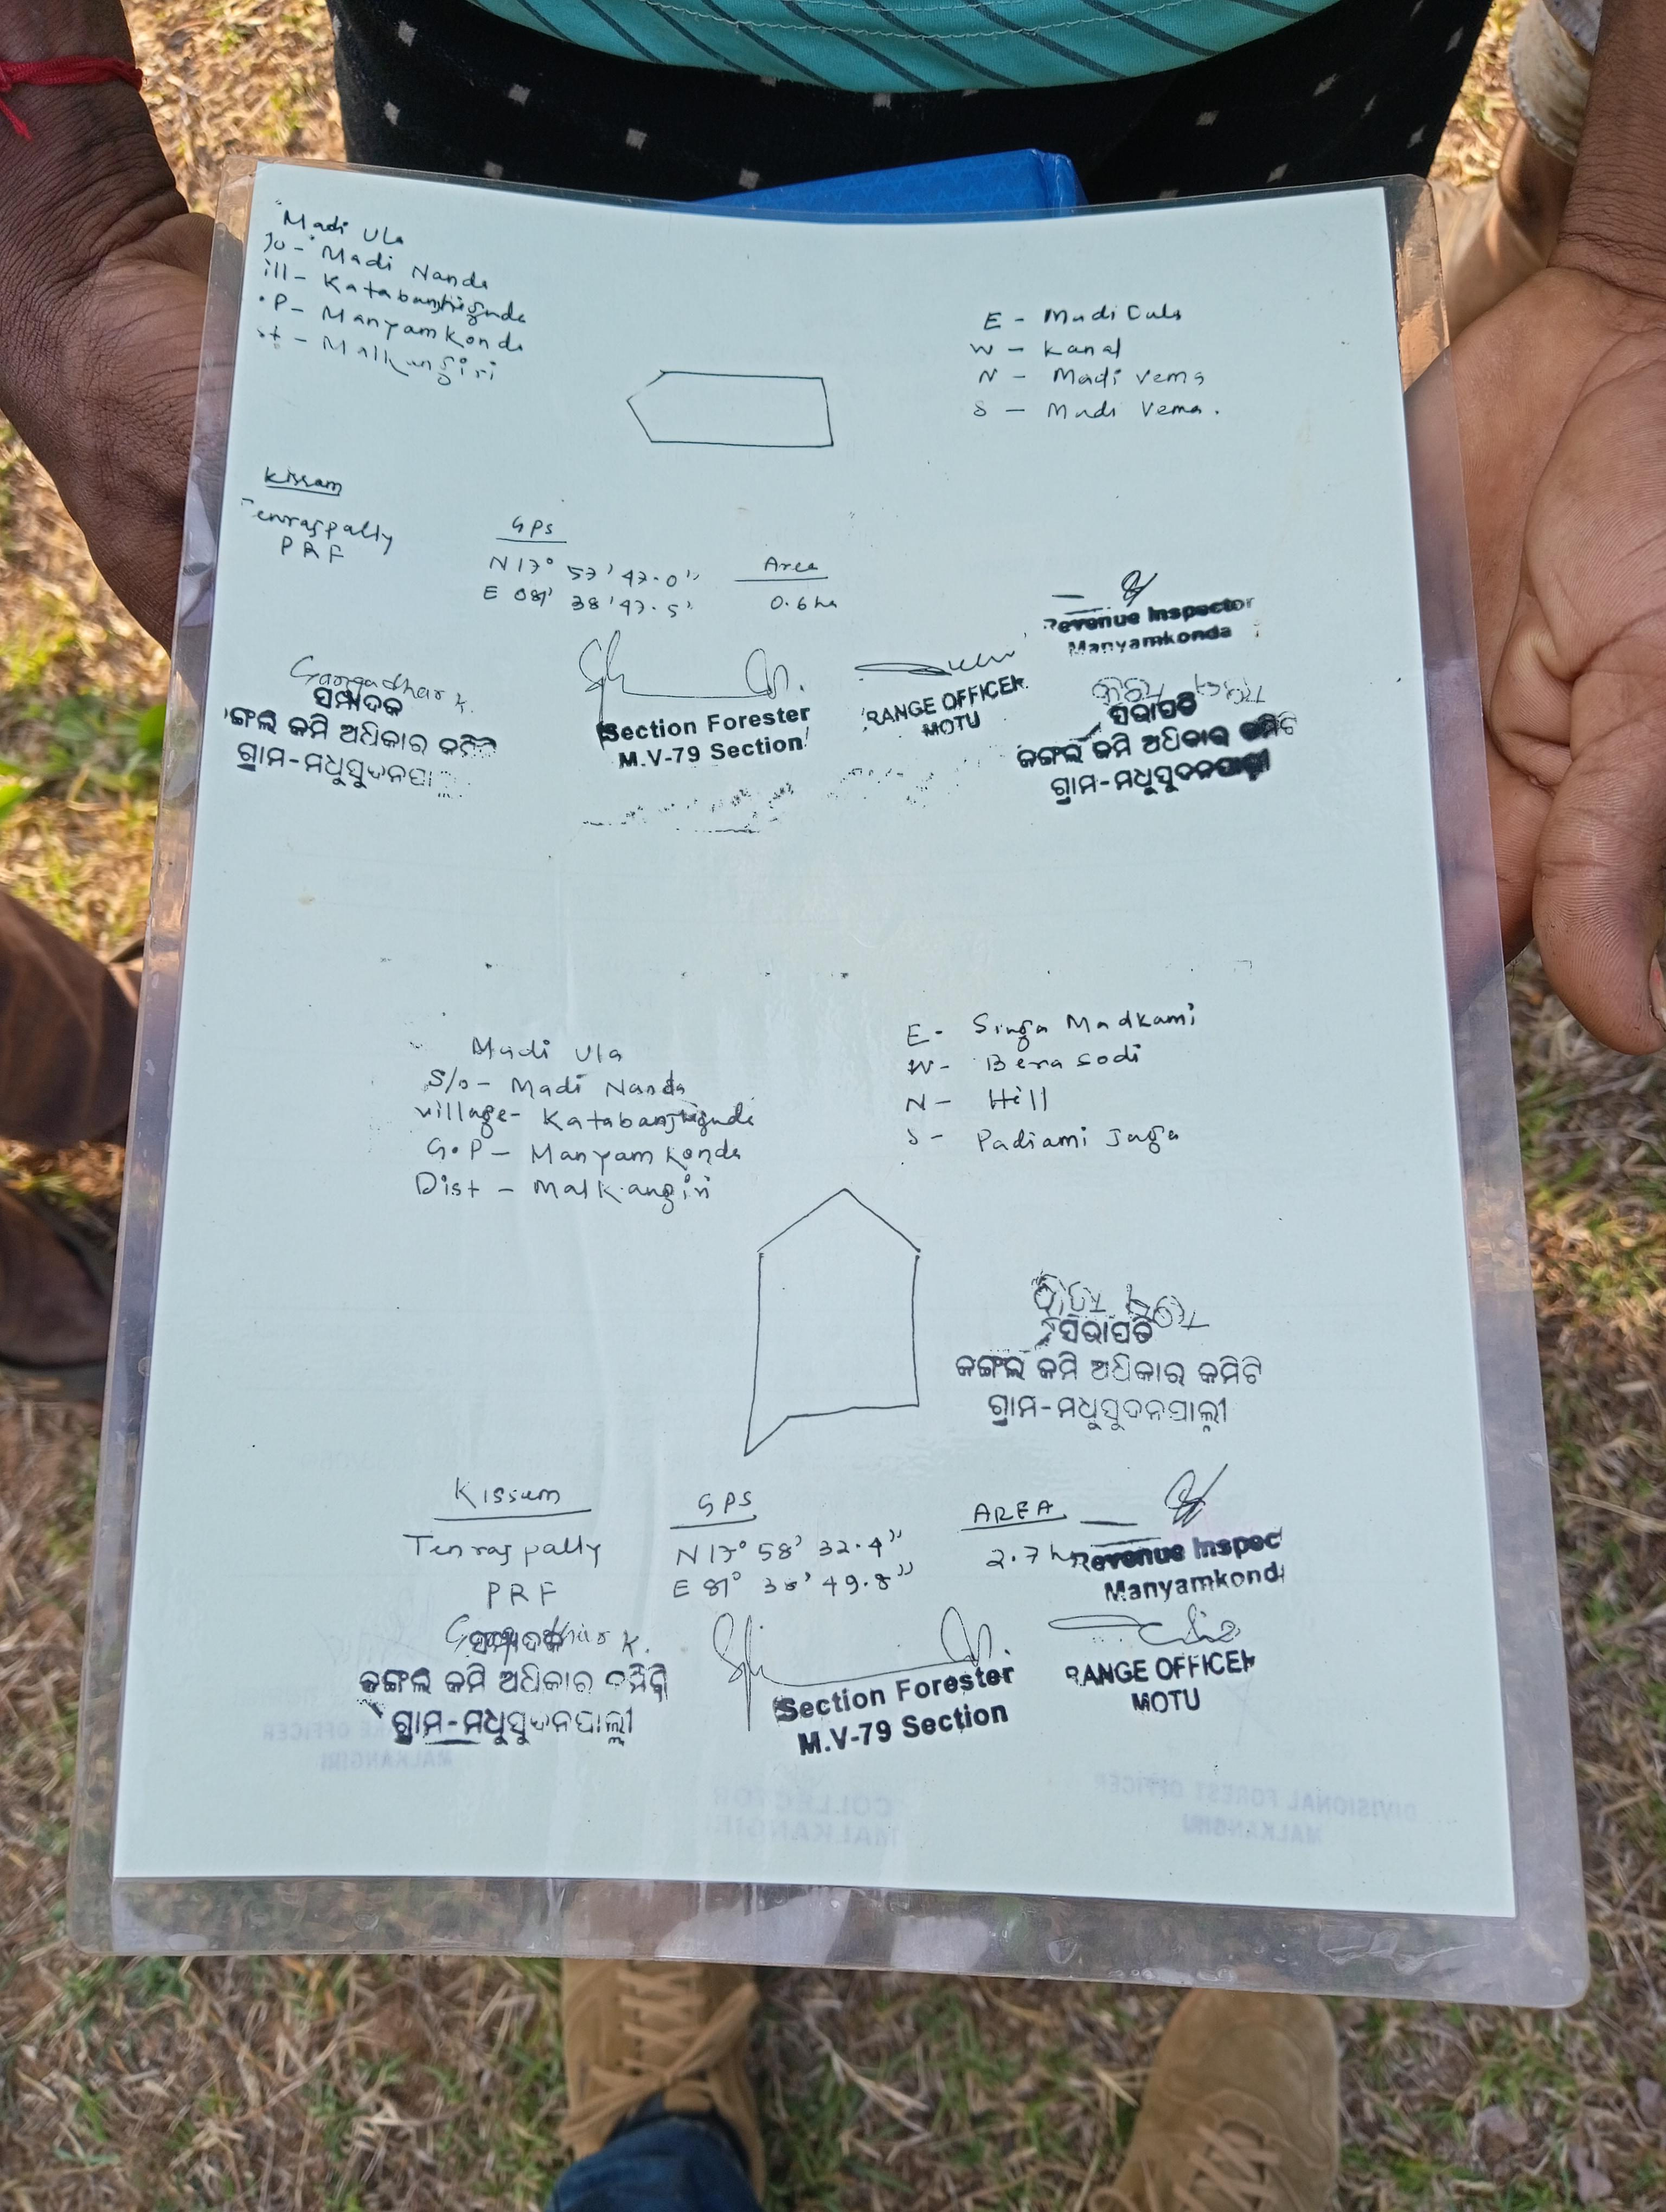 Madi Ula
Madi Nanda
ill- Katabanjhigude
.P- Manyamkonda
st - Malkangiri
E - Madi Cula
W - Kanal
N - Madi Vema
S - Madi Vema.
Kissam
Tenraspally
PRF
GPS
N 17° 57' 47.0"
E 081° 38' 47.5"
Area
0.6 ha
Revenue Inspector
Manyamkonda
Gangadhar K.
ସମ୍ପାଦକ
ଜଙ୍ଗଲ ଜମି ଅଧିକାର କମିଟି
ଗ୍ରାମ-ମଧୁସୁଦନପା
Section Forester
M.V-79 Section
RANGE OFFICER
MOTU
ସଭାପତି
ଜଙ୍ଗଲ ଜମି ଅଧିକାର କମିଟି
ଗ୍ରାମ-ମଧୁସୁଦନପାଲ୍ଲୀ
Madi Ula
S/o- Madi Nanda
village- Katabanjhigude
G.P- Manyamkonda
Dist - Malkangiri
E- Singa Madkami
W- Bera sodi
N- Hill
S- Padiami Jaga
ସଭାପତି
ଜଙ୍ଗଲ ଜମି ଅଧିକାର କମିଟି
ଗ୍ରାମ-ମଧୁସୁଦନପାଲ୍ଲୀ
Kissum
Tenraspally
PRF
GPS
N 17° 58' 32.4"
E 81° 38' 49.8"
AREA
2.7 h
Revenue Inspec
Manyamkond
Gangadhar K.
ସମ୍ପାଦକ
ଜଙ୍ଗଲ ଜମି ଅଧିକାର କମିଟି
ଗ୍ରାମ-ମଧୁସୁଦନପାଲ୍ଲୀ
Section Forester
M.V-79 Section
RANGE OFFICER
MOTU
COLLECTOR
MALKANGIRI
DIVISIONAL FOREST OFFICER
MALKANGIRI